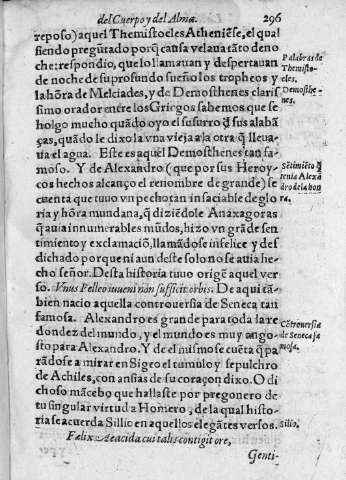 del Cuerpo y del Alma.
296
reposo) aquel Themistocles Atheniẽse, el qual
siendo pregũtado porq̃ causa velaua tãto de no
che: respondio, que lo llamauan y despertauan
de noche de su profundo sueño los tropheos y
la hõra de Melciades, y de Demosthenes claris
simo orador entre los Griegos sabemos que se
holgo mucho quãdo oyo el susurro q̃ sus alabã
ças, quãdo le dixo la vna vieja a la otra q̃ lleua-
ua el agua. Este es aquel Demosthenes tan fa-
moso. Y de Alexandro (que por sus Heroy-
cos hechos alcanço el renombre de grande) se
cuenta que tuuo vn pecho tan insaciable de glo
ria y hõra mundana, q̃ diziẽdole Anaxagoras
q̃ auia innumerables mũdos, hizo vn grãde sen
timiento y exclamaciõ, llamãdose infelice y des
dichado porque ni aun deste solo no se auia he-
cho señor. Desta historia tuuo origẽ aquel ver-
so. Vnus Pelleo iuueni non sufficit orbis. De aqui tã-
bien nacio aquella controuersia de Seneca tan
famosa. Alexandro es grande para toda la re
dondez del mundo, y el mundo es muy ango-
sto para Alexandro. Y de el mismo se cuẽta q̃ pa
rãdose a mirar en Sigeo el tumulo y sepulchro
de Achiles, con ansias de su coraçon dixo. O di
choso mãcebo que hallaste por pregonero de
tu singular virtud a Homero, de la qual histo-
ria se acuerda Sillio en aquellos elegãtes versos.
Fælix Aeacida cui talis contigit ore,
Genti-
Palabras de
Themisto-
cles,
Demosthe-
nes.
Sẽtimiẽto q̃
tenia Alexã
dro de la hon
ra.
Cõtrouersia
de Seneca fa
mosa.
Silio.